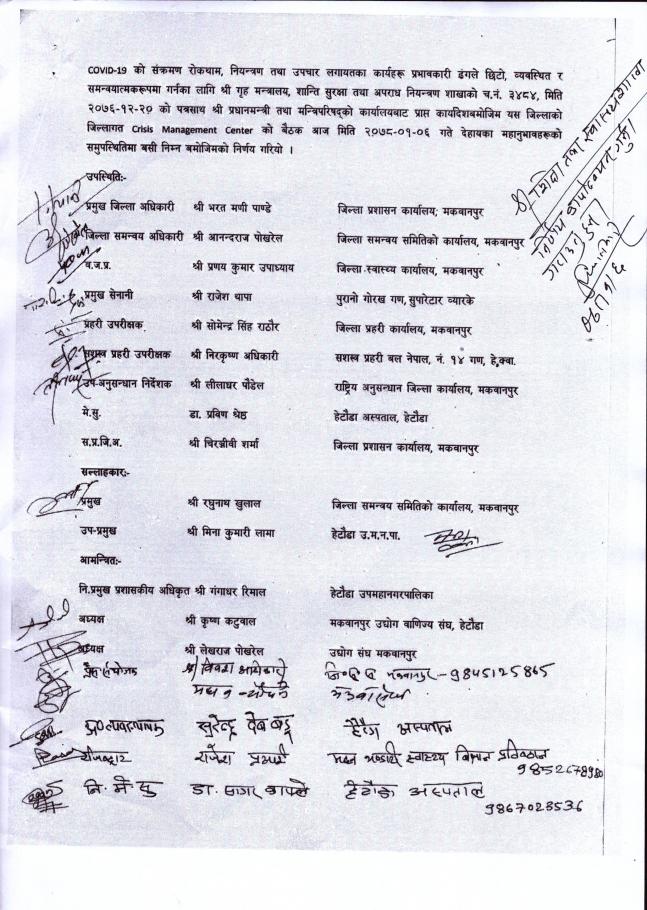 COVID-19 को संक्रमण रोकथाम, नियन्त्रण तथा उपचार लगायतका कार्यहरू प्रभावकारी ढंगले छिटो, व्यवस्थित र
समन्वयात्मकरूपमा गर्नका लागि श्री गृह मन्त्रालय, शान्ति सुरक्षा तथा अपराध नियन्त्रण शाखाको च.नं. ३४८४, मिति
२०७६-१२-२० को पत्रसाथ श्री प्रधानमन्त्री तथा मन्त्रिपरिषद्को कार्यालयबाट प्राप्त कार्यादेशबमोजिम यस जिल्लाको
जिल्लागत Crisis Management Center को बैठक आज मिति २०७८-०१-०६ गते देहायका महानुभावहरूको
समुपस्थितिमा बसी निम्न बमोजिमको निर्णय गरियो ।
उपस्थितिः-
प्रमुख जिल्ला अधिकारी श्री भरत मणी पाण्डे जिल्ला प्रशासन कार्यालय, मकवानपुर
जिल्ला समन्वय अधिकारी श्री आनन्दराज पोखरेल जिल्ला समन्वय समितिको कार्यालय, मकवानपुर
व.ज.प्र. श्री प्रणय कुमार उपाध्याय जिल्ला स्वास्थ्य कार्यालय, मकवानपुर
प्रमुख सेनानी श्री राजेश थापा पुरानो गोरख गण, सुपारेटार व्यारेक
प्रहरी उपरीक्षक श्री सोमेन्द्र सिंह राठौर जिल्ला प्रहरी कार्यालय, मकवानपुर
सशस्त्र प्रहरी उपरीक्षक श्री निरकृष्ण अधिकारी सशस्त्र प्रहरी बल नेपाल, नं. १४ गण, हे.क्वा.
उप-अनुसन्धान निर्देशक श्री लीलाधर पौडेल राष्ट्रिय अनुसन्धान जिल्ला कार्यालय, मकवानपुर
मे.सु. डा. प्रविण श्रेष्ठ हेटौडा अस्पताल, हेटौडा
स.प्र.जि.अ. श्री चिरञ्जीवी शर्मा जिल्ला प्रशासन कार्यालय, मकवानपुर
सल्लाहकारः-
प्रमुख श्री रघुनाथ खुलाल जिल्ला समन्वय समितिको कार्यालय, मकवानपुर
उप-प्रमुख श्री मिना कुमारी लामा हेटौडा उ.म.न.पा.
आमन्त्रितः-
नि.प्रमुख प्रशासकीय अधिकृत श्री गंगाधर रिमाल हेटौडा उपमहानगरपालिका
अध्यक्ष श्री कृष्ण कटुवाल मकवानपुर उद्योग वाणिज्य संघ, हेटौडा
अध्यक्ष श्री लेखराज पोखरेल उद्योग संघ मकवानपुर
मकवानपुर - 9845125865
सुरेन्द्र देव अस्पताल
राजेश मदन भण्डारी स्वास्थ्य विज्ञान प्रतिष्ठान
9852678980
नि. मे. सु डा. सागर काफ्ले हेटौडा अस्पताल
9867028536